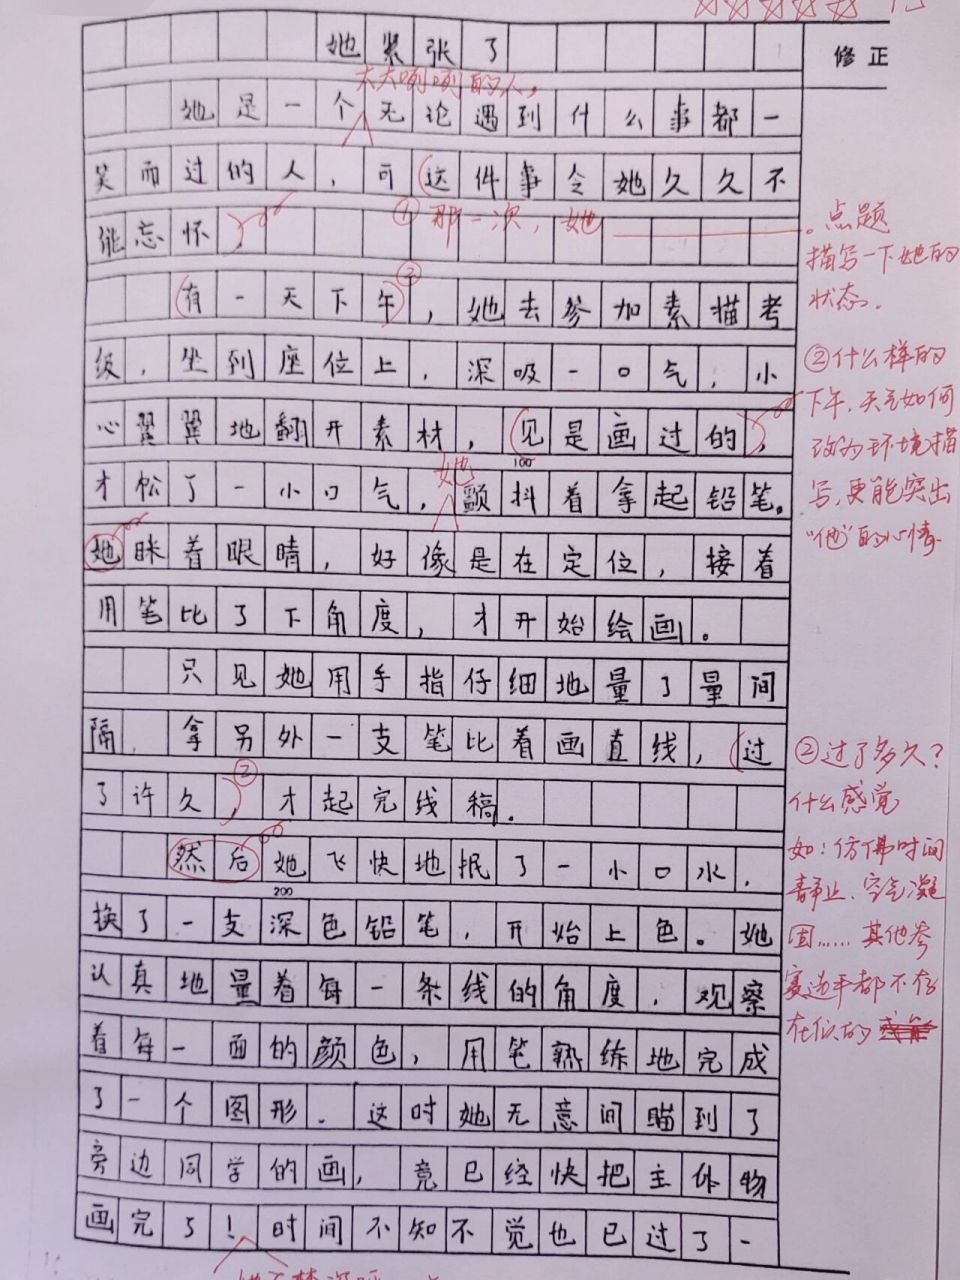 她紧张了
修正
大大咧咧的人，
她是一个无论遇到什么事都一
笑而过的人，可这件事令她久久不
①那一次，她
能忘怀，
。点题
描写一下她的
状态。
有一天下午，她去参加素描考
②
级，坐到座位上，深吸一口气，小
②什么样的
下午，天气如何
心翼翼地翻开素材，见是画过的，
的环境描
写，更能突出
"她"的心情
她
100
才松了一小口气，颤抖着拿起铅笔。
她眯着眼睛，好像是在定位，接着
用笔比了下角度，才开始绘画。
只见她用手指仔细地量了量间
隔，拿另外一支笔比着画直线，过
②过了多久？
什么感觉
如：仿佛时间
静止，空气凝
固……其他参
赛选手都不存
在似的
②
了许久，才起完线稿。
然后她飞快地抿了一小口水，
200
换了一支深色铅笔，开始上色。她
认真地量着每一条线的角度，观察
着每一面的颜色，用笔熟练地完成
了一个图形。这时她无意间瞄到了
旁边同学的画，竟已经快把主体物
画完了！时间不知不觉也已过了一